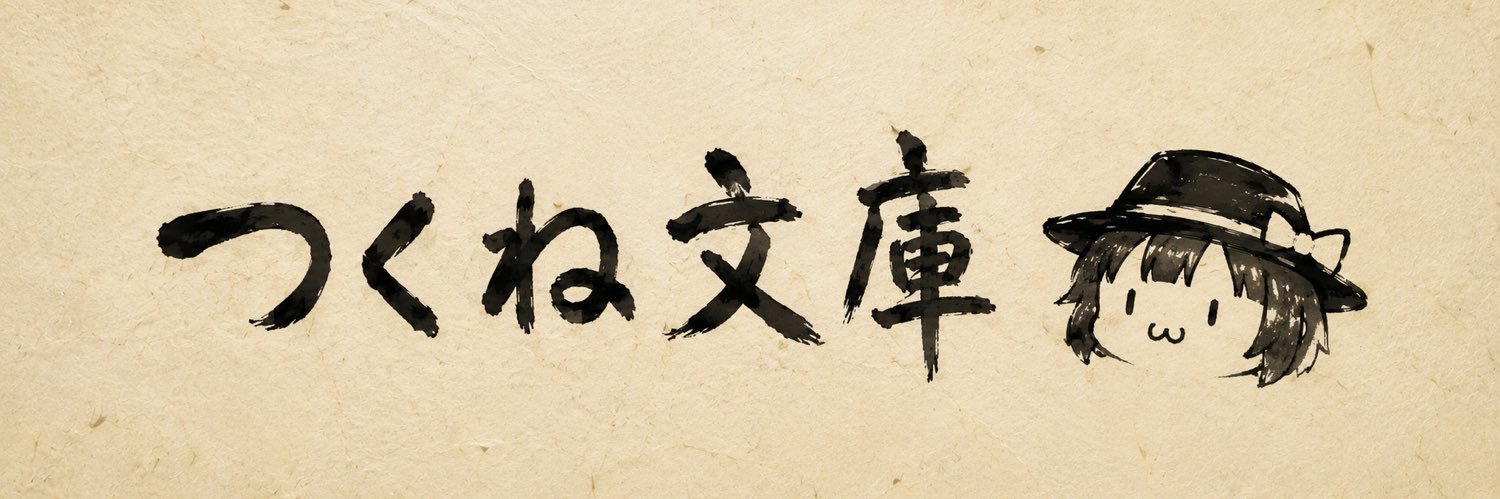 つくね文庫